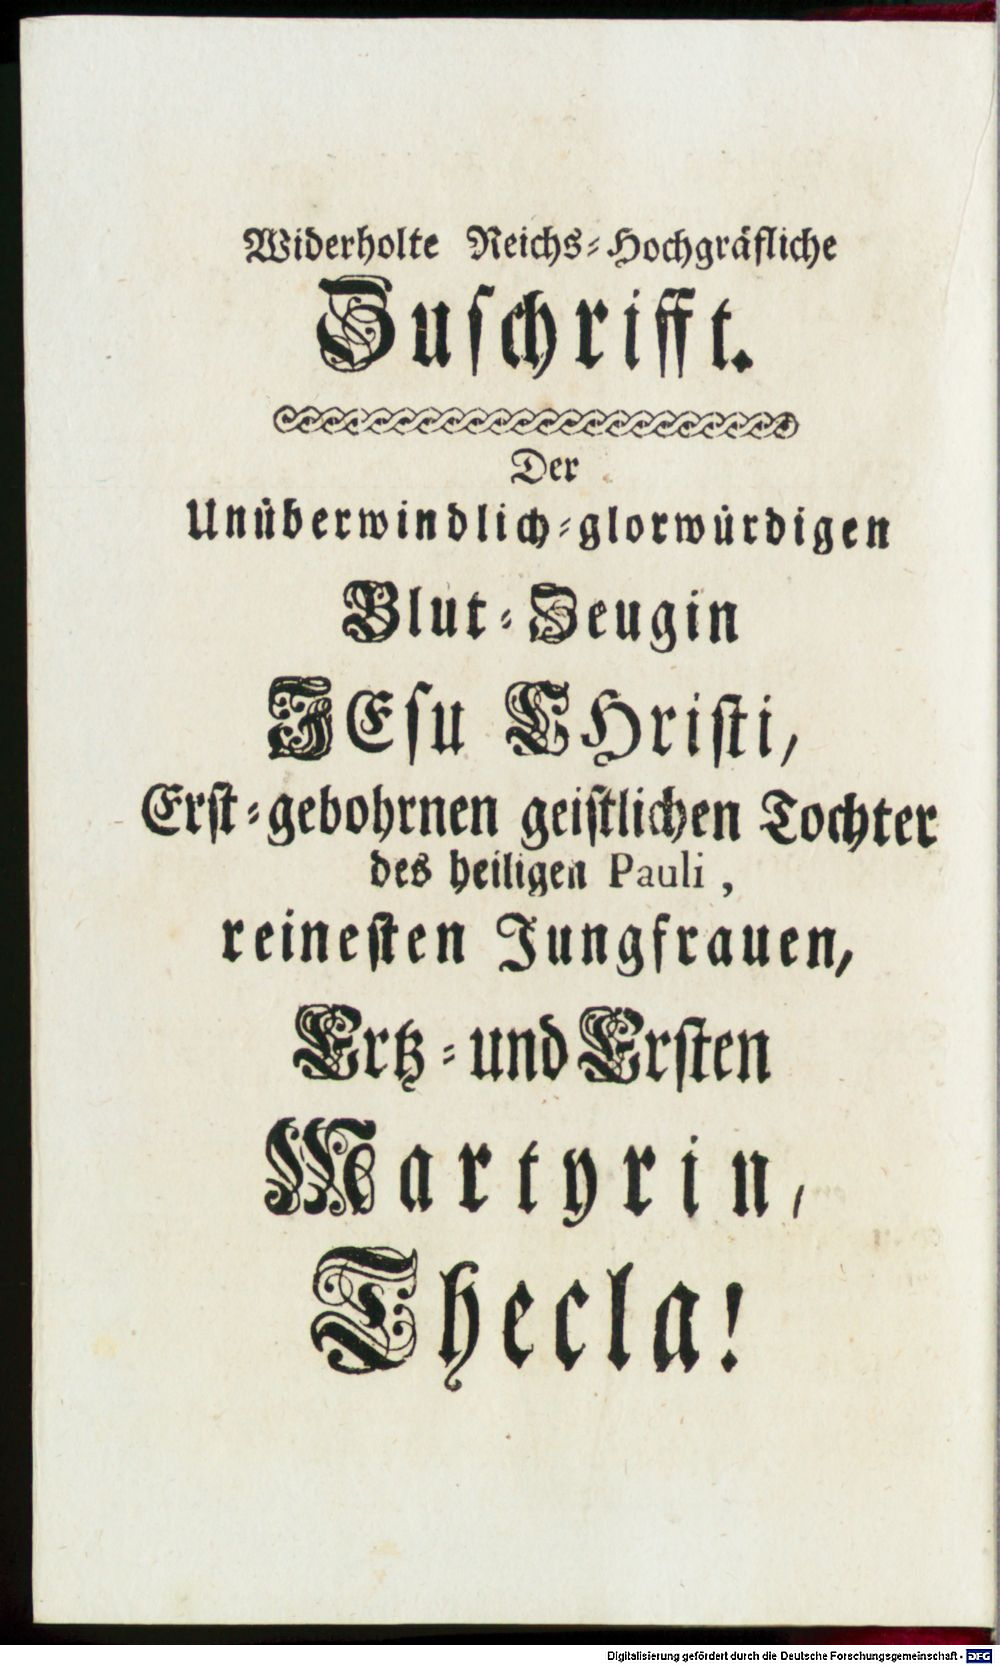 Widerholte Reichs-Hochgräfliche
Zuschrifft.
Der
Unüberwindlich-glorwürdigen
Blut-Zeugin
JEsu CHristi,
Erst-gebohrnen geistlichen Tochter
des heiligen Pauli,
reinesten Jungfrauen,
Ertz- und Ersten
Martyrin,
Thecla!
Digitalisierung gefördert durch die Deutsche Forschungsgemeinschaft - DFG